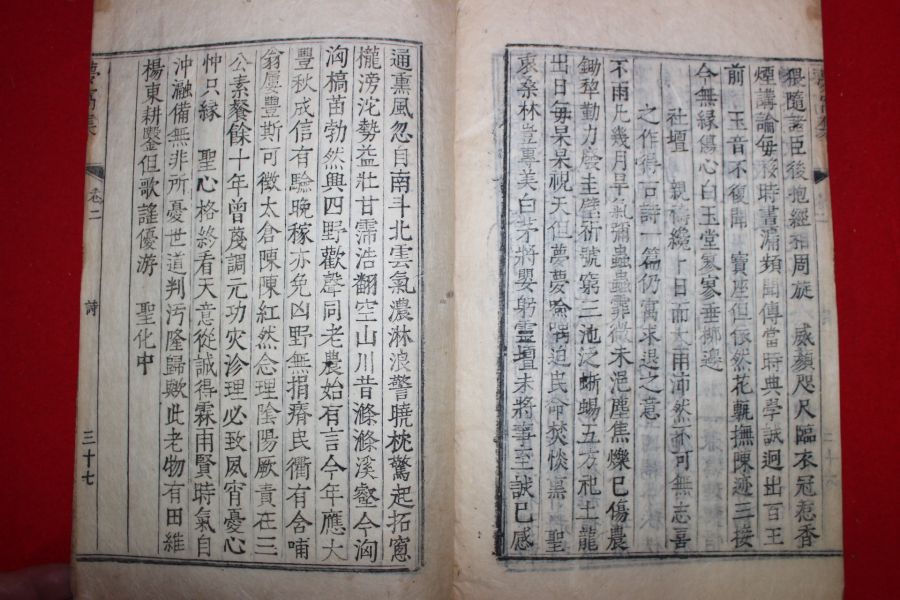 猥隨諸臣後抱經相周旋 威顔咫尺臨衣冠惹香
煙講論每移時晝漏頻聞傳當時典學誠迥出百王
前 玉音不復聞 寶座但依然花甎撫陳迹三接
今無緣傷心白玉堂垂柳邊
社壇 親禱纔十日而大雨沛然不可無志喜
之作得古詩一篇仍寓求退之意
不雨凡幾月旱氣彌蟲蟲霏微未浥塵焦爍已傷農
鋤犁動力廢圭璧祈號窮三池泛蜥蜴五方祀土龍
出日每杲杲視天但夢夢喁迫民命焚惔聖
衷桑林豈專美白茅將嬰躬靈壇未將事至誠已感
通熏風忽自南斗北雲氣濃淋浪警曉枕驚起拓窓
櫳滂沱勢益壯甘霈浩翻空山川昔滌滌溪壑今洶
洶槁苗勃然興四野歡聲同老農始有言今年應大
豐秋成信有驗晩稼亦免凶野無捐瘠民衢有含哺
翁屢豐斯可徵太倉陳陳紅然念理陰陽厥責在三
公素餐餘十年曾蔑調元功灾沴理必致夙宵憂心
忡只緣 聖心格終看天意從誠得霖雨賢時氣自
沖瀜備無非所憂世道判汚隆歸歟此老物有田維
楊東耕鑿但歌謠優游 聖化中
夢窩集 卷二 詩 三十七